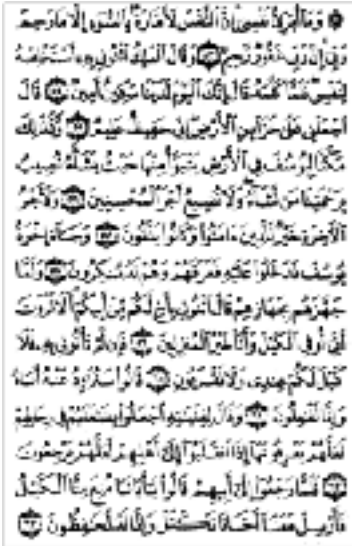 ۞ وَمَا أُبَرِّئُ نَفْسِي إِنَّ النَّفْسَ لَأَمَّارَةٌ بِالسُّوءِ إِلَّا مَا رَحِمَ
رَبِّي إِنَّ رَبِّي غَفُورٌ رَّحِيمٌ ۝٥٣ وَقَالَ الْمَلِكُ ائْتُونِي بِهِ أَسْتَخْلِصْهُ
لِنَفْسِي فَلَمَّا كَلَّمَهُ قَالَ إِنَّكَ الْيَوْمَ لَدَيْنَا مَكِينٌ أَمِينٌ ۝٥٤ قَالَ
اجْعَلْنِي عَلَى خَزَائِنِ الْأَرْضِ إِنِّي حَفِيظٌ عَلِيمٌ ۝٥٥ وَكَذَلِكَ
مَكَّنَّا لِيُوسُفَ فِي الْأَرْضِ يَتَبَوَّأُ مِنْهَا حَيْثُ يَشَاءُ نُصِيبُ
بِرَحْمَتِنَا مَن نَّشَاءُ وَلَا نُضِيعُ أَجْرَ الْمُحْسِنِينَ ۝٥٦ وَلَأَجْرُ
الْآخِرَةِ خَيْرٌ لِّلَّذِينَ ءَامَنُوا وَكَانُوا يَتَّقُونَ ۝٥٧ وَجَاءَ إِخْوَةُ
يُوسُفَ فَدَخَلُوا عَلَيْهِ فَعَرَفَهُمْ وَهُمْ لَهُ مُنكِرُونَ ۝٥٨ وَلَمَّا
جَهَّزَهُم بِجَهَازِهِمْ قَالَ ائْتُونِي بِأَخٍ لَّكُم مِّنْ أَبِيكُمْ أَلَا تَرَوْنَ
أَنِّي أُوفِي الْكَيْلَ وَأَنَا خَيْرُ الْمُنزِلِينَ ۝٥٩ فَإِن لَّمْ تَأْتُونِي بِهِ فَلَا
كَيْلَ لَكُمْ عِندِي وَلَا تَقْرَبُونِ ۝٦٠ قَالُوا سَنُرَاوِدُ عَنْهُ أَبَاهُ
وَإِنَّا لَفَاعِلُونَ ۝٦١ وَقَالَ لِفِتْيَانِهِ اجْعَلُوا بِضَاعَتَهُمْ فِي رِحَالِهِمْ
لَعَلَّهُمْ يَعْرِفُونَهَا إِذَا انقَلَبُوا إِلَى أَهْلِهِمْ لَعَلَّهُمْ يَرْجِعُونَ
۝٦٢ فَلَمَّا رَجَعُوا إِلَى أَبِيهِمْ قَالُوا يَا أَبَانَا مُنِعَ مِنَّا الْكَيْلُ
فَأَرْسِلْ مَعَنَا أَخَانَا نَكْتَلْ وَإِنَّا لَهُ لَحَافِظُونَ ۝٦٣